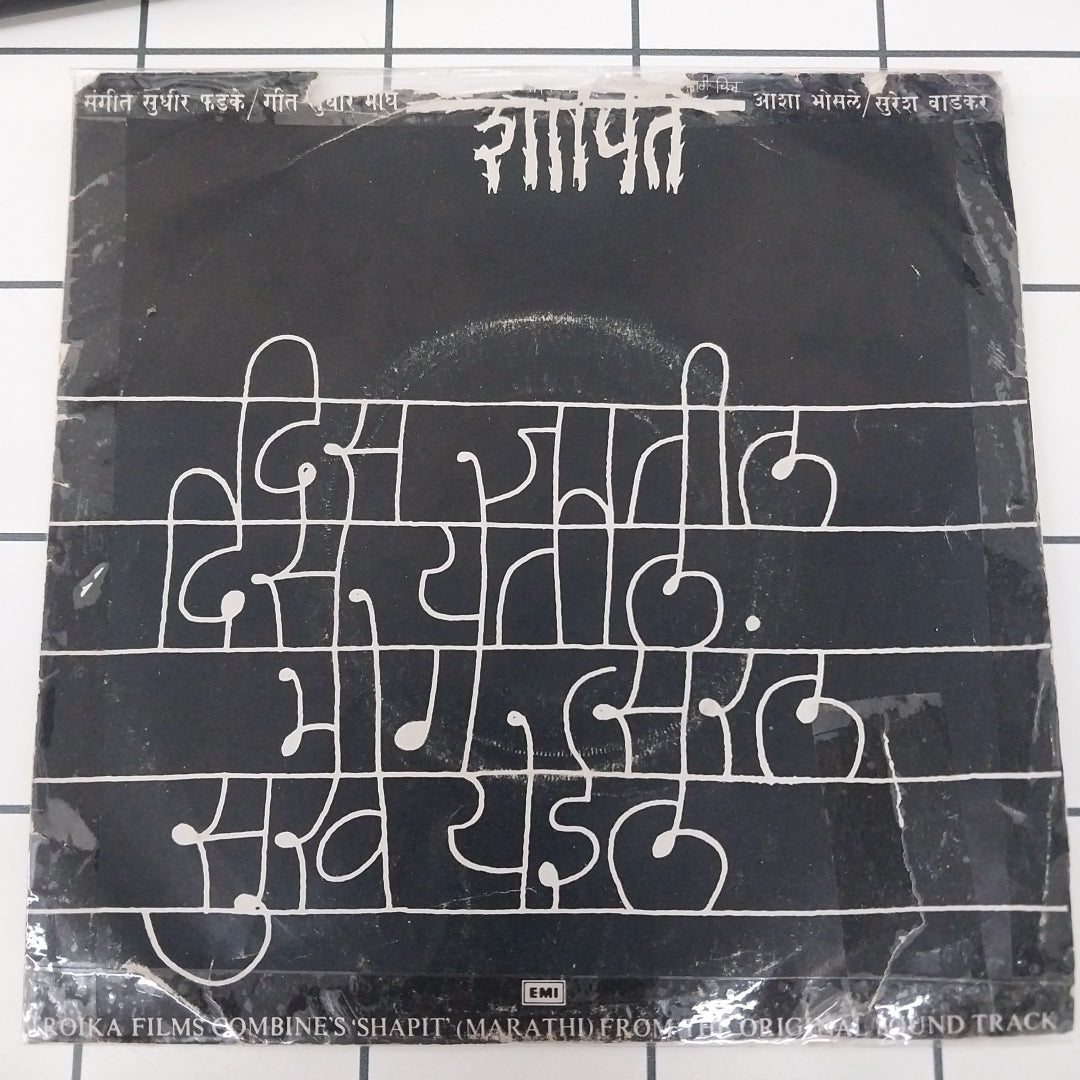 संगीत सुधीर फडके/गीत सुधीर मोघे
आशा भोसले/सुरेश वाडकर
शापित
दिस जातील
दिस येतील
भोग सरंल
सुख येईल
EMI
ROIKA FILMS COMBINE'S 'SHAPIT' (MARATHI) FROM THE ORIGINAL SOUND TRACK